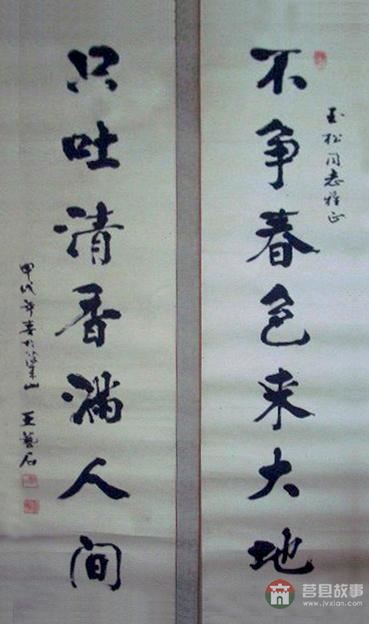 玉松同志雅正
不争春色来大地
只吐清香满人间
甲戌年春于梁山 王艺石
莒县故事
www.jvxian.com